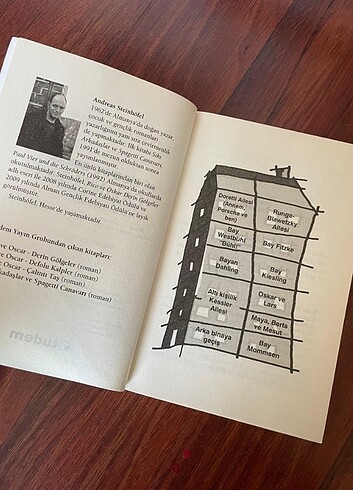 Andreas Steinhöfel
1962'de Almanya'da doğan yazar,
çocuk ve gençlik romanları
yazarlığının yanı sıra çevirmenlik
de yapmaktadır. İlk kitabı Sıkı
Arkadaşlar ve Spagetti Canavarı,
1991'de mezun olduktan sonra
yayımlanmıştır.
En üstün kitaplarından biri olan
Paul Vier und die Schröders (1992) Almanya'da okullarda
okutulmaktadır. Steinhöfel, Rico ve Oskar Derin Gölgeler
adlı eseri ile 2008 yılında Corine Edebiyat Ödülü'nü ve
2009 yılında Alman Gençlik Edebiyatı Ödülü'ne layık
görülmüştür.
Steinhöfel, Hesse'de yaşamaktadır.
dem Yayın Grubundan çıkan kitapları:
ve Oscar - Derin Gölgeler (roman)
ve Oscar - Defolu Kalpler (roman)
ve Oscar - Çalıntı Taş (roman)
kadaşlar ve Spagetti Canavarı (roman)
tudem
Doretti Ailesi
(Annem,
Porsche ve
ben)
Runge-
Blawetzky
Ailesi
Bay
Westbühl
"Bühl"
Bay Fitzke
Bayan
Dahling
Bay
Kiesling
Altı kişilik
Kessler
Ailesi
Oskar ve
Lars
Maya, Berts
ve Mesut
Arka binaya
geçiş
Bay
Mommsen